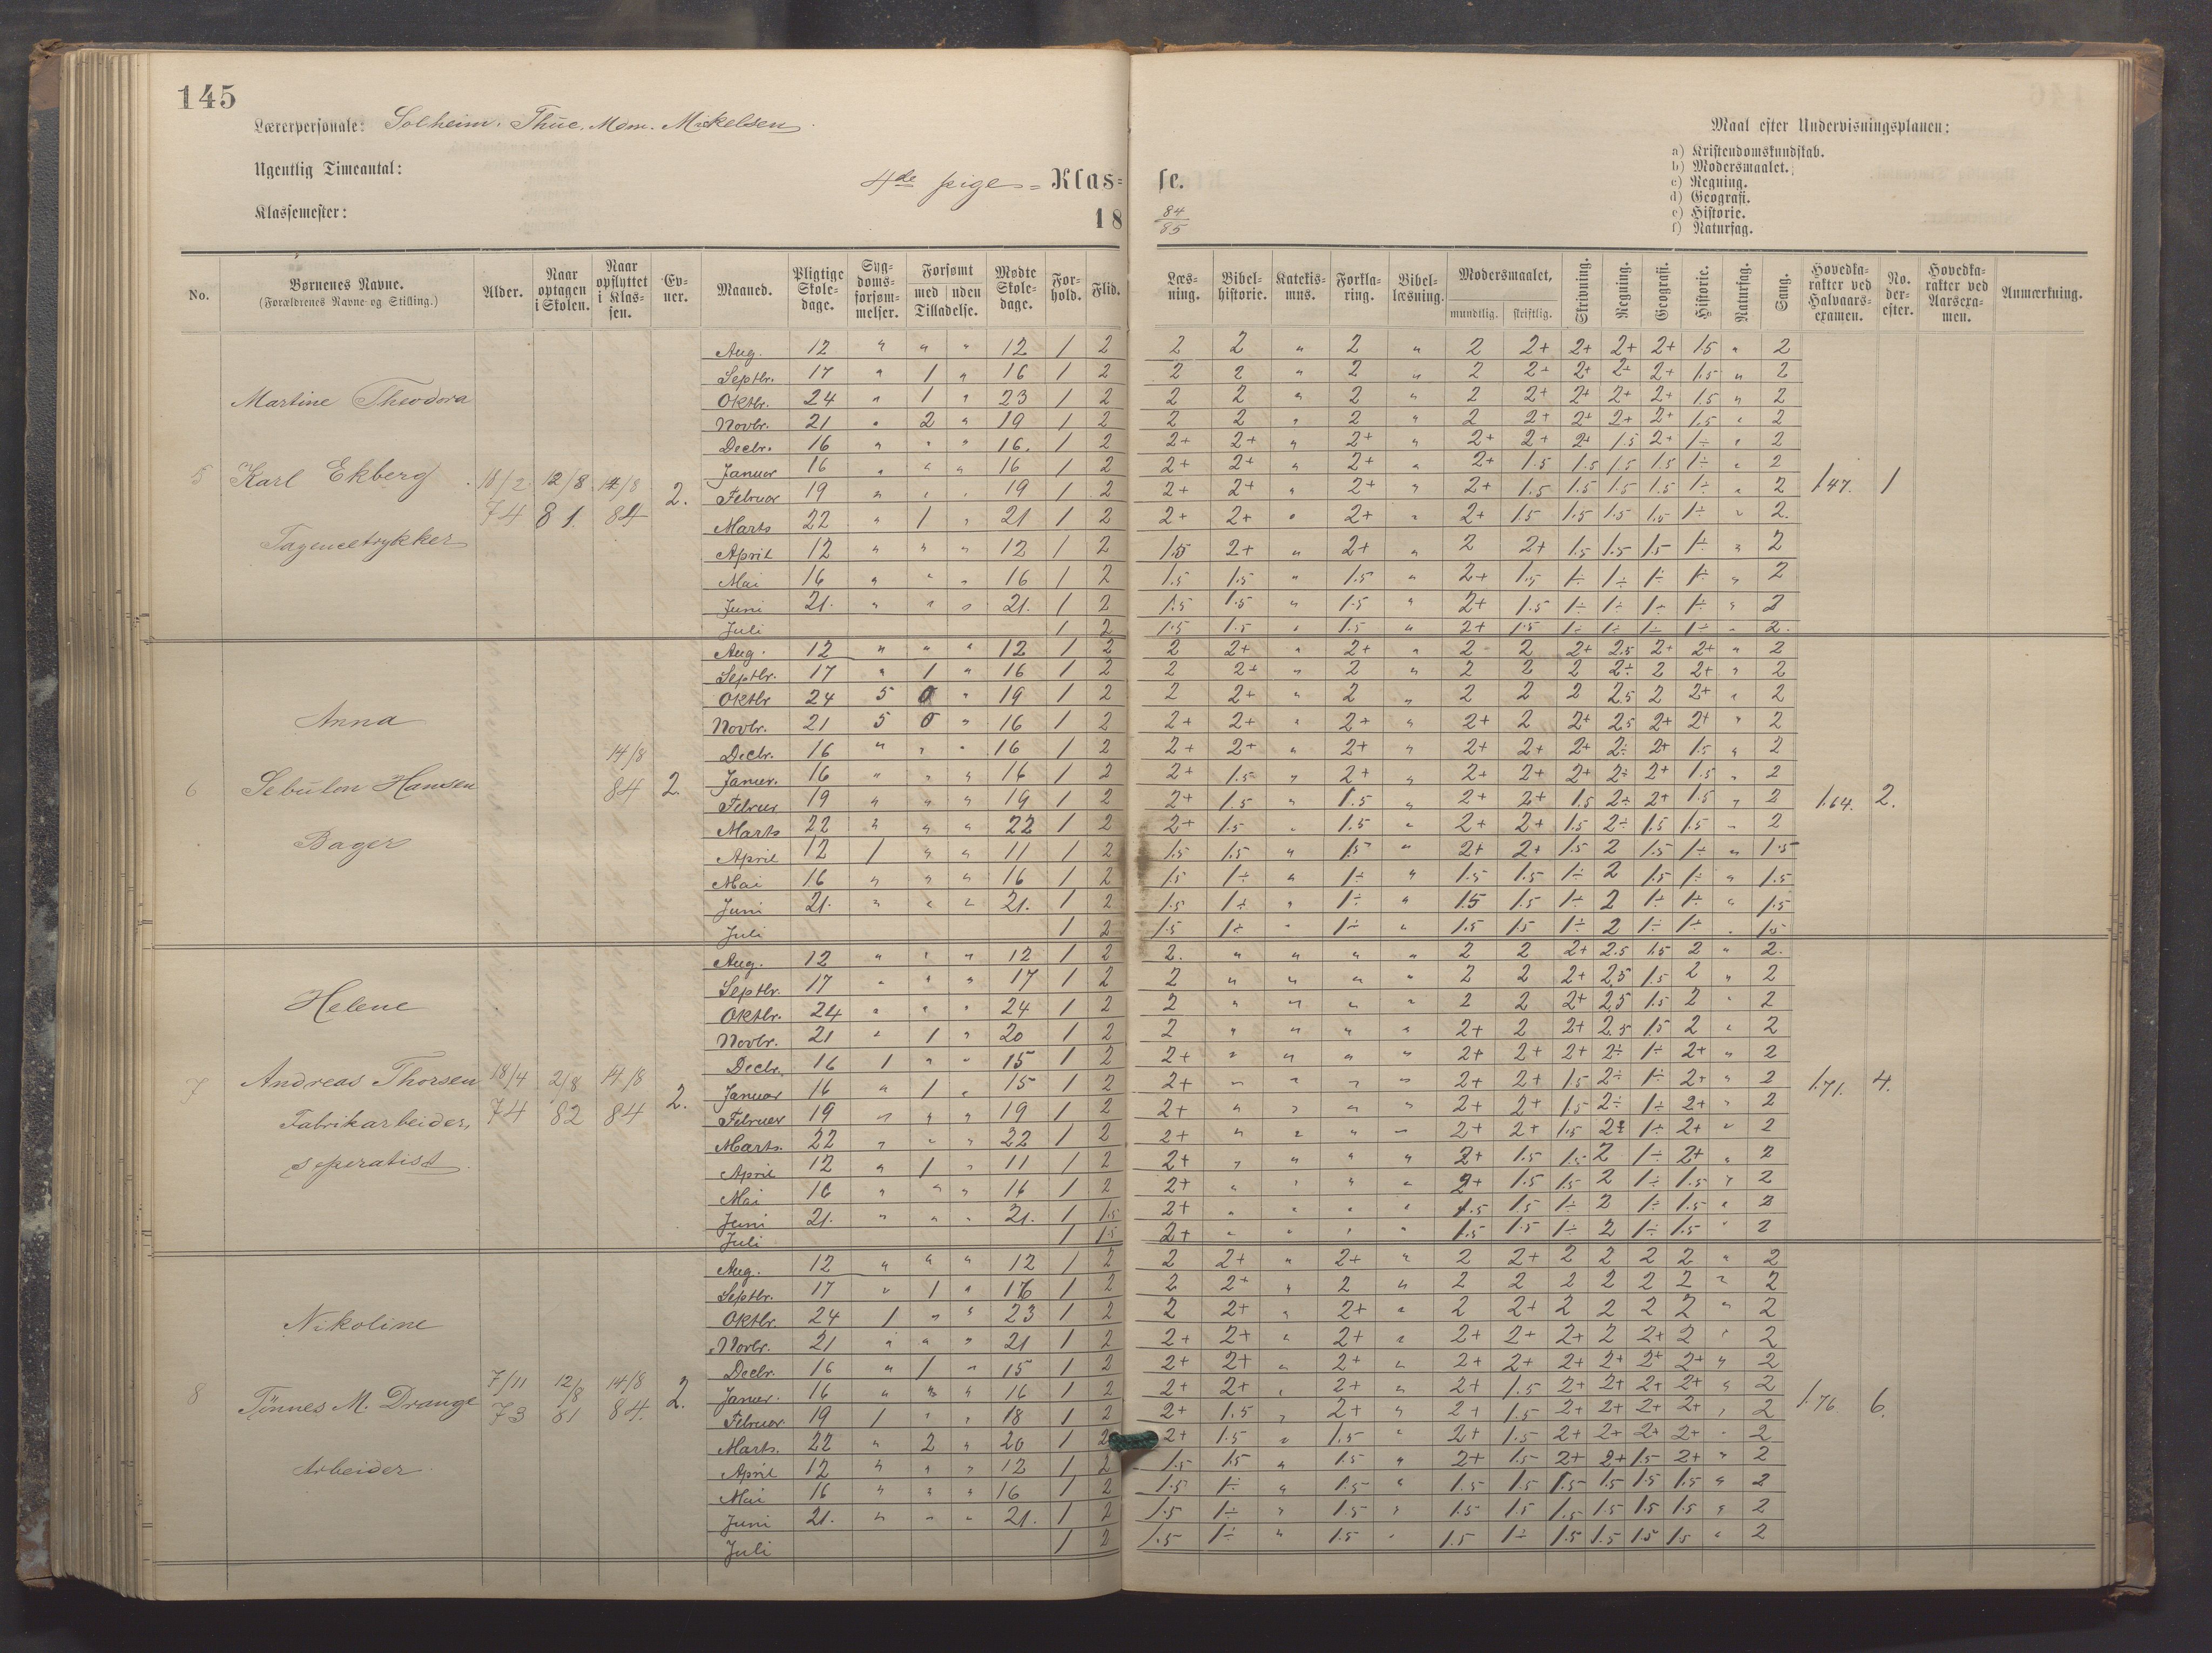 145
Lærerpersonale: Solheim. Thue. Mdm. Mickelsen.
Ugentlig Timeantal:
4de pige = Klas= se.
Klassemester: 18 84/85
Maal efter Undervisningsplanen:
a) Kristendomskundskab.
b) Modersmaalet.
c) Regning.
d) Geografi.
e) Historie.
f) Naturfag.
No. Børnenes Navne. (Forældrenes Navne og Stilling.) Alder. Naar optagen i Skolen. Naar opflyttet i Klassen. Evner. Maaned. Pligtige Skoledage. Sygdomsforsømmelser. Forsømt med uden Tilladelse. Mødte Skoledage. Forhold. Flid. Læsning. Bibelhistorie. Katekismus. Forklaring. Bibellæsning. Modersmaalet, mundtlig. skriftlig. Skrivning. Regning. Geografi. Historie. Naturfag. Sang. Hovedkarakter ved Halvaarsexamen. No. derefter. Hovedkarakter ved Aarsexamen. Anmærkning.
5 Martine Theodora
Karl Ekberg 18/2 74 12/8 81. 14/8 84 2. 1.47. 1
Aug. 12 " " " 12 1 2 2 2 " 2 " 2 2+ 2+ 2+ 2+ 1.5 " 2
Septbr. 17 " 1 " 16 1 2 2 2 " 2 " 2 2+ 2+ 2+ 2+ 1.5 " 2
Oktbr. 24 " 1 " 23 1 2 2 2 " 2 " 2 2+ 2+ 2+ 2+ 1.5 " 2
Novbr. 21 " 2 " 19 1 2 2 2 " 2 " 2 2+ 2+ 2+ 2+ 1.5 " 2
Decbr. 16 " " " 16. 1 2 2+ 2+ " 2+ " 2+ 2+ 2+ 1.5 2+ 1÷ " 2
Januar 16 " " " 16 1 2 2+ 2+ " 2+ " 2+ 1.5 1.5 1.5 1.5 1÷ " 2
Februar 19 " " " 19 1 2 2+ 2+ " 2+ " 2+ 1.5 1.5 1.5 1.5 1÷ " 2
Marts 22 " 1 " 21 1 2 2+ 2+ " 2+ " 2+ 1.5 1.5 1.5 1.5 1÷ " 2.
April 12 " " " 12 1 2 1.5 2+ " 2+ " 2 2+ 1.5 1.5 1.5 1÷ " 2
Mai 16 " " " 16 1 2 1.5 1.5 " 1.5 " 2+ 1.5 1÷ 1÷ 1÷ 1÷ " 2
Juni 21. " " " 21. 1 2 1.5 1.5 " 1.5 " 2+ 1.5 1÷ 1÷ 1÷ 1÷ " 2
Juli 1 2 1.5 1.5 " 1.5 " 2+ 1.5 1÷ 1÷ 1÷ 1÷ " 2.
6 Anna
Sebulon Hansen 14/8 84 2. 1.64. 2.
Bager
Aug. 12 " " " 12 1 2 2 2+ " 2+ " 2 2 2+ 2.5 2+ 2+ " 2
Septbr. 17 " 1 " 16 1 2 2 2+ " 2 " 2 2 2 2÷ 2 2+ " 2
Oktbr 24 5 0 " 19 1 2 2 2+ " 2 " 2 2 2 2.5 2 2+ " 2
Novbr. 21 5 0 " 16 1 2 2+ 2+ " 2+ " 2+ 2 2+ 2.5 2+ 2+ " 2
Decbr. 16 " " " 16 1 2 2+ 2+ " 2+ " 2+ 2+ 2+ 2÷ 2+ 1.5 " 2
Januar. 16 " " " 16 1 2 2+ 1.5 " 2+ " 2+ 2+ 2+ 2÷ 2+ 1.5 " 2
Februar 19 " " " 19 1 2 2+ 1.5 " 1.5 " 2+ 2+ 1.5 2÷ 2+ 1.5 " 2
Marts 22 " " " 22 1 2 2+ 1.5 " 1.5 " 2+ 2+ 1.5 2÷ 1.5 1.5 " 2
April 12 1 " " 11 1 2 1.5 1.5 " 1.5 " 2+ 2+ 1.5 2 1.5 1÷ " 1.5
Mai 16 " " " 16 1 2 1.5 1÷ " 1÷ " 1.5 1.5 1÷ 2 1.5 1÷ " 1.5
Juni 21. " " " 21. 1 2 1.5 1÷ " 1÷ " 1.5 1.5 1÷ 2 1÷ 1÷ " 1.5
Juli 1 2 1.5 1÷ " 1÷ " 1.5 1.5 1÷ 2 1÷ 1÷ " 1.5
7 Helene
Andreas Thorsen 18/4 74 2/8 82 14/8 84 2. 1.71. 4.
Fabrikarbeider,
seperatist
Aug. 12 " " " 12 1 2 2. " " " " 2 2 2+ 2.5 1.5 2 " 2.
Septbr. 17 " " " 17 1 2 2 " " " " 2 2 2+ 2.5 1.5 2 " 2
Oktbr. 24 " " " 24 1 2 2 " " " " 2 2 2+ 2.5 1.5 2 " 2
Novbr. 21 " 1 " 20 1 2 2 " " " " 2+ 2 2+ 2.5 1.5 2 " 2
Decbr. 16 1 " " 15 1 2 2+ " " " " 2+ 2+ 2+ 2÷ 1÷ 2+ " 2
Januar 16 " 1 " 15 1 2 2+ " " " " 2+ 2+ 1.5 2÷ 1÷ 2+ " 2
Februar 19 " " " 19 1 2 2+ " " " " 2+ 2+ 1.5 2÷ 1÷ 2+ " 2
Marts. 22 " " " 22 1 2 2+ " " " " 2+ 2+ 1.5 2÷ 1÷ 2+ " 2
April 12 " 1 " 11 1 2 2+ " " " " 2+ 1.5 1.5 2 1÷ 2+ " 2
Mai 16 " " " 16 1 2 2+ " " " " 2+ 1.5 1.5 2 1÷ 1.5 " 2
Juni 21. " " " 21. 1 1.5 2+ " " " " 1.5 1.5 1÷ 2 1÷ 1.5 " 2
Juli 1 1.5 2+ " " " " 1.5 1.5 1÷ 2 1÷ 1.5 " 2
8 Nikoline
Tönnes M. Drange 7/11 73 12/8 81 14/8 84. 2. 1.76 6.
Arbeider
Aug. 12 " " " 12 1 2 2 2+ " 2+ " 2 2+ 2 2 2 2 " 2
Septbr. 17 " 1 " 16 1 2 2 2+ " 2 " 2 2 2 2 2 2 " 2
Oktbr. 24 1 " " 23 1 2 2 2+ " 2+ " 2 2+ 2 2 2 2 " 2
Novbr. 21 " " " 21 1 2 2+ 2+ " 2+ " 2+ 2+ 2+ 2 2+ 2 " 2
Decbr 16 " 1 " 15 1 2 2+ 2+ " 2+ " 2+ 2+ 2+ 2+ 2+ 2+ " 2
Januar. 16 " " " 16 1 2 2+ 2+ " 2+ " 2+ 1.5 2+ 2+ 2+ 2+ " 2
Februar 19 1 " " 18 1 2 2+ 1.5 " 2+ " 2+ 1.5 2+ 2+ 2+ 2+ " 2
Marts. 22 " 2 " 20 1 2 2+ 1.5 " 1.5 " 2+ 1.5 2+ 2+ 2+ 2+ " 2
April 12 " " " 12 1 2 1.5 1.5 " 1.5 " 2+ 1.5 2+ 2+ 1.5 2+ " 2
Mai 16 " " " 16 1 2 1.5 1÷ " 1.5 " 1.5 1.5 1.5 1.5 1.5 1.5 " 2
Juni 21. " " " 21. 1 2 1.5 1÷ " 1.5 " 1.5 1.5 1.5 1.5 1.5 1.5 " 2
Juli 1 2 1.5 1÷ " 1.5 " 1.5 1÷ 1.5 1.5 1.5 1.5 " 2